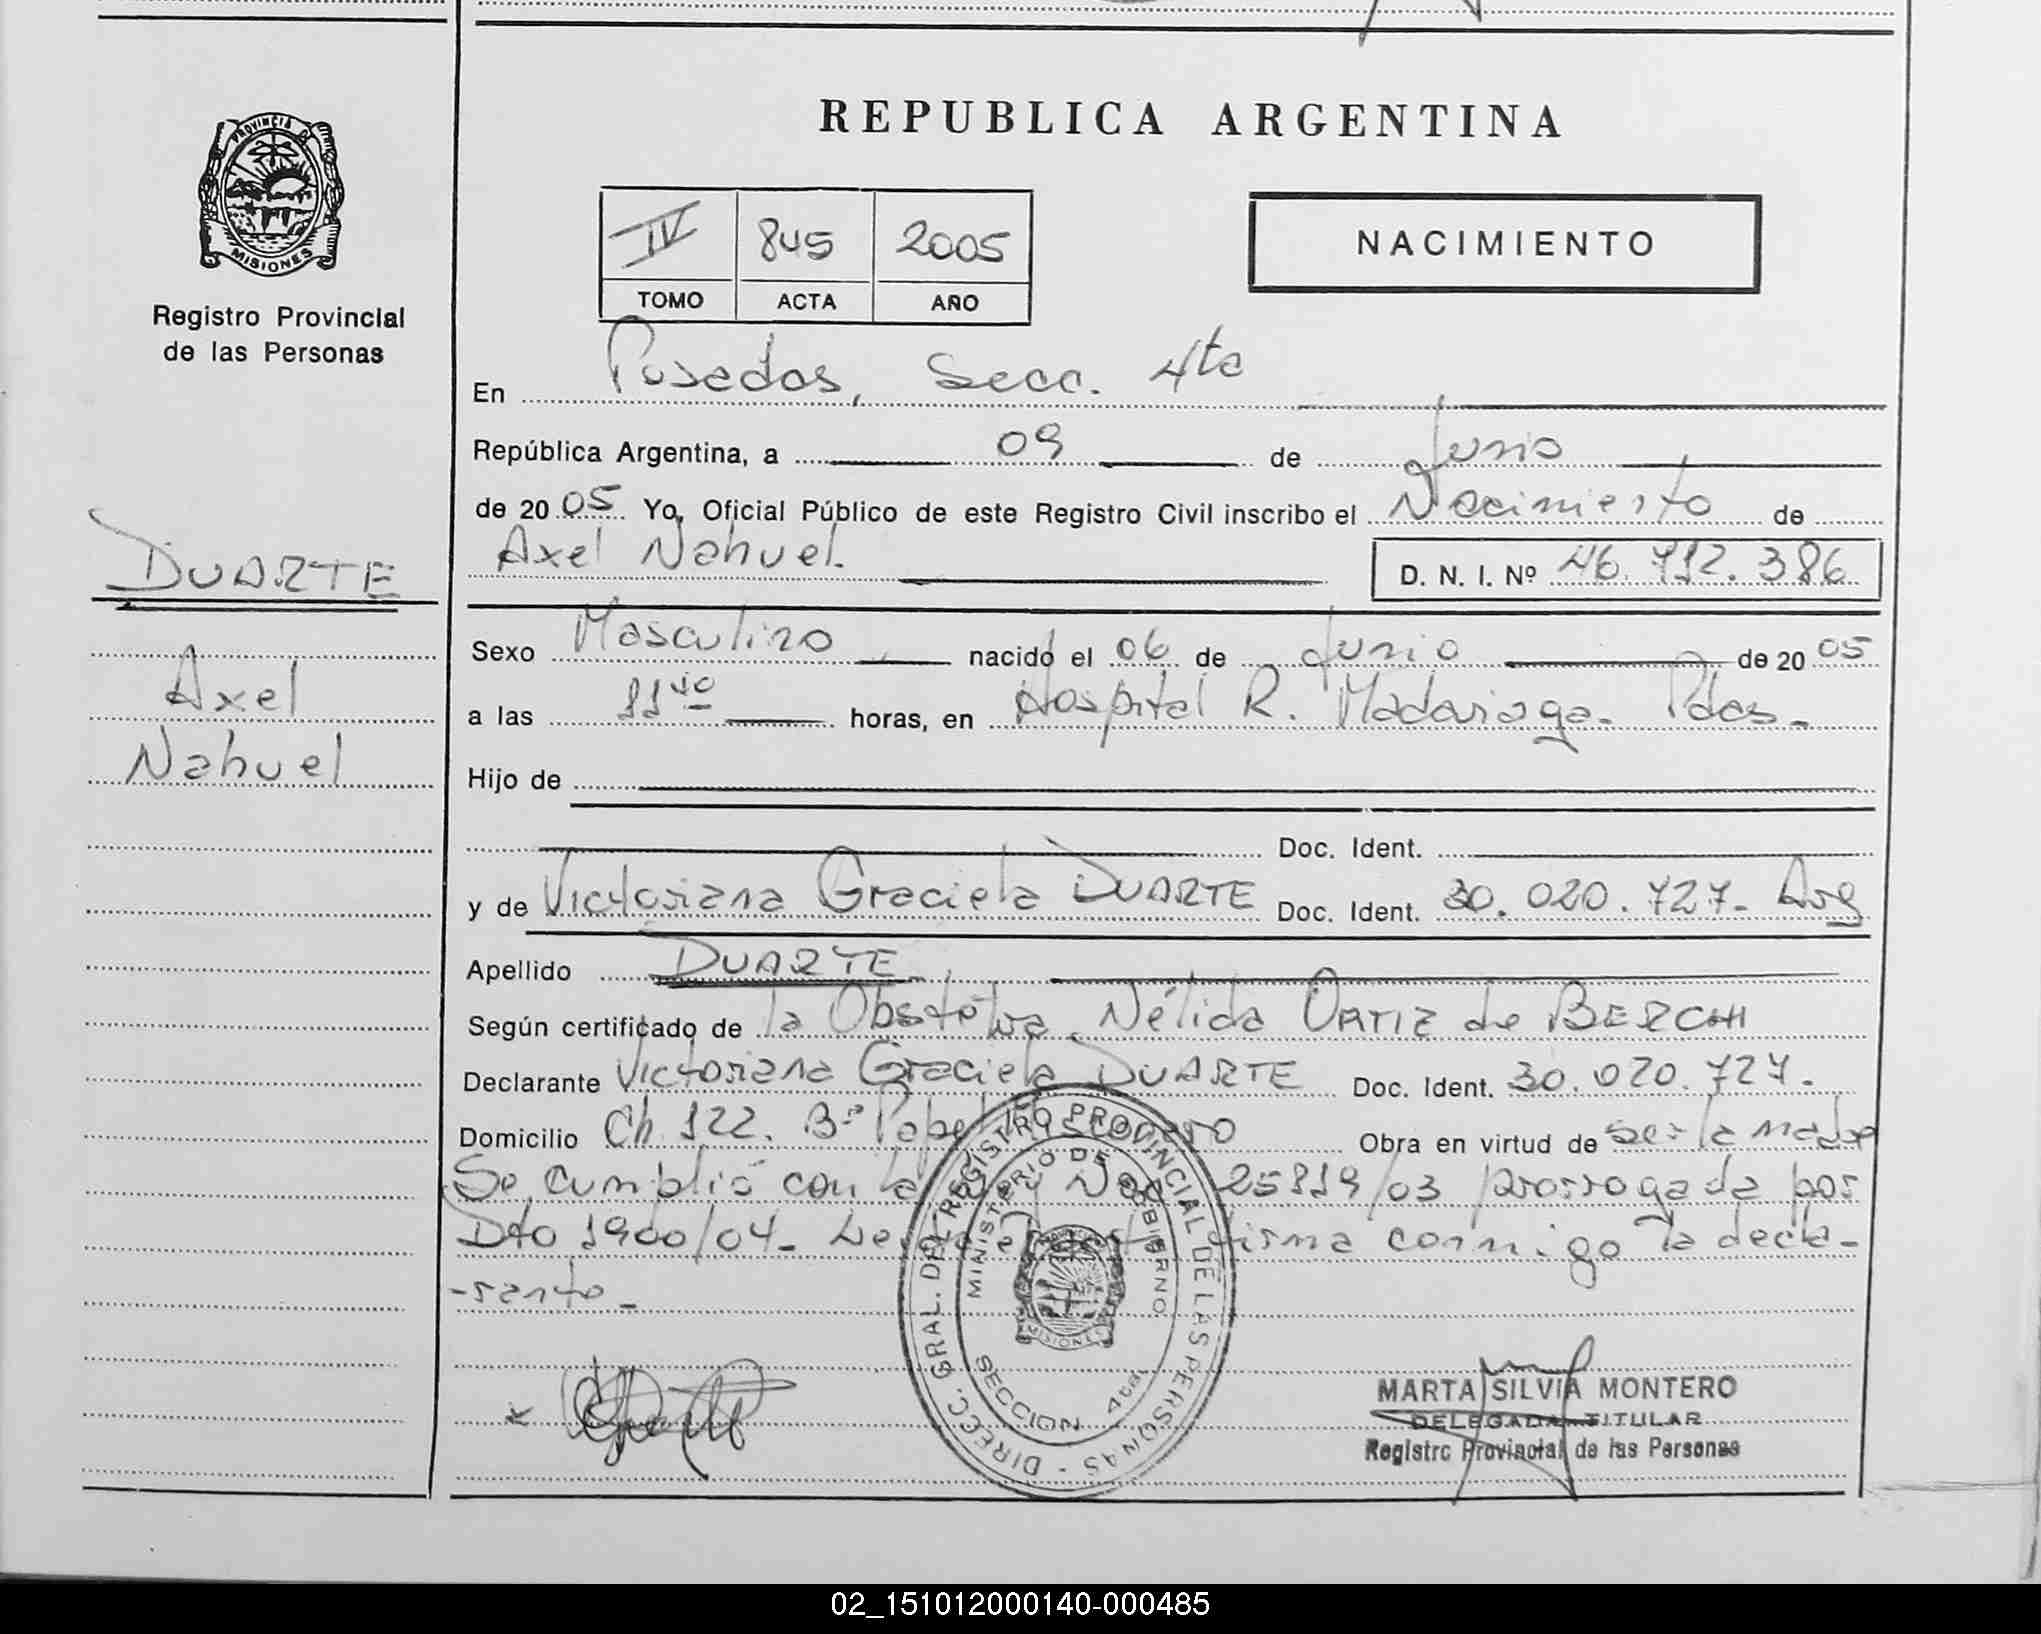 REPUBLICA ARGENTINA
PROVINCIA D
MISIONES
Registro Provincial
de las Personas
IV 845 2005
TOMO ACTA AÑO
NACIMIENTO
En Posadas, Secc. 4ta
República Argentina, a 09 de Junio
de 2005 Yo, Oficial Público de este Registro Civil inscribo el Nacimiento de
Axel Nahuel. D. N. I. Nº 46.712.386
DUARTE
Axel
Nahuel
Sexo Masculino nacido el 06 de Junio de 2005
a las 11 40 horas, en Hospital R. Madariaga. Pdas.
Hijo de
Doc. Ident.
y de Victoriana Graciela DUARTE Doc. Ident. 30.020.727. Arg
Apellido DUARTE
Según certificado de la Obstétra. Nélida ORTIZ de BERCHI
Declarante Victoriana Graciela DUARTE Doc. Ident. 30.020.727.
Domicilio Ch 122. Bº Obra en virtud de ser la madre
Se cumplió con la Ley 25819/03 prorrogada por
Dto 1900/04- firma conmigo la decla-
-rante-
DIREC. GRAL. DEL REGISTRO PROVINCIAL DE LAS PERSONAS -
MINISTERIO DE GOBIERNO
MISIONES
SECCION 4ta
MARTA SILVIA MONTERO
DELEGADA TITULAR
Registro Provincial de las Personas
02_151012000140-000485